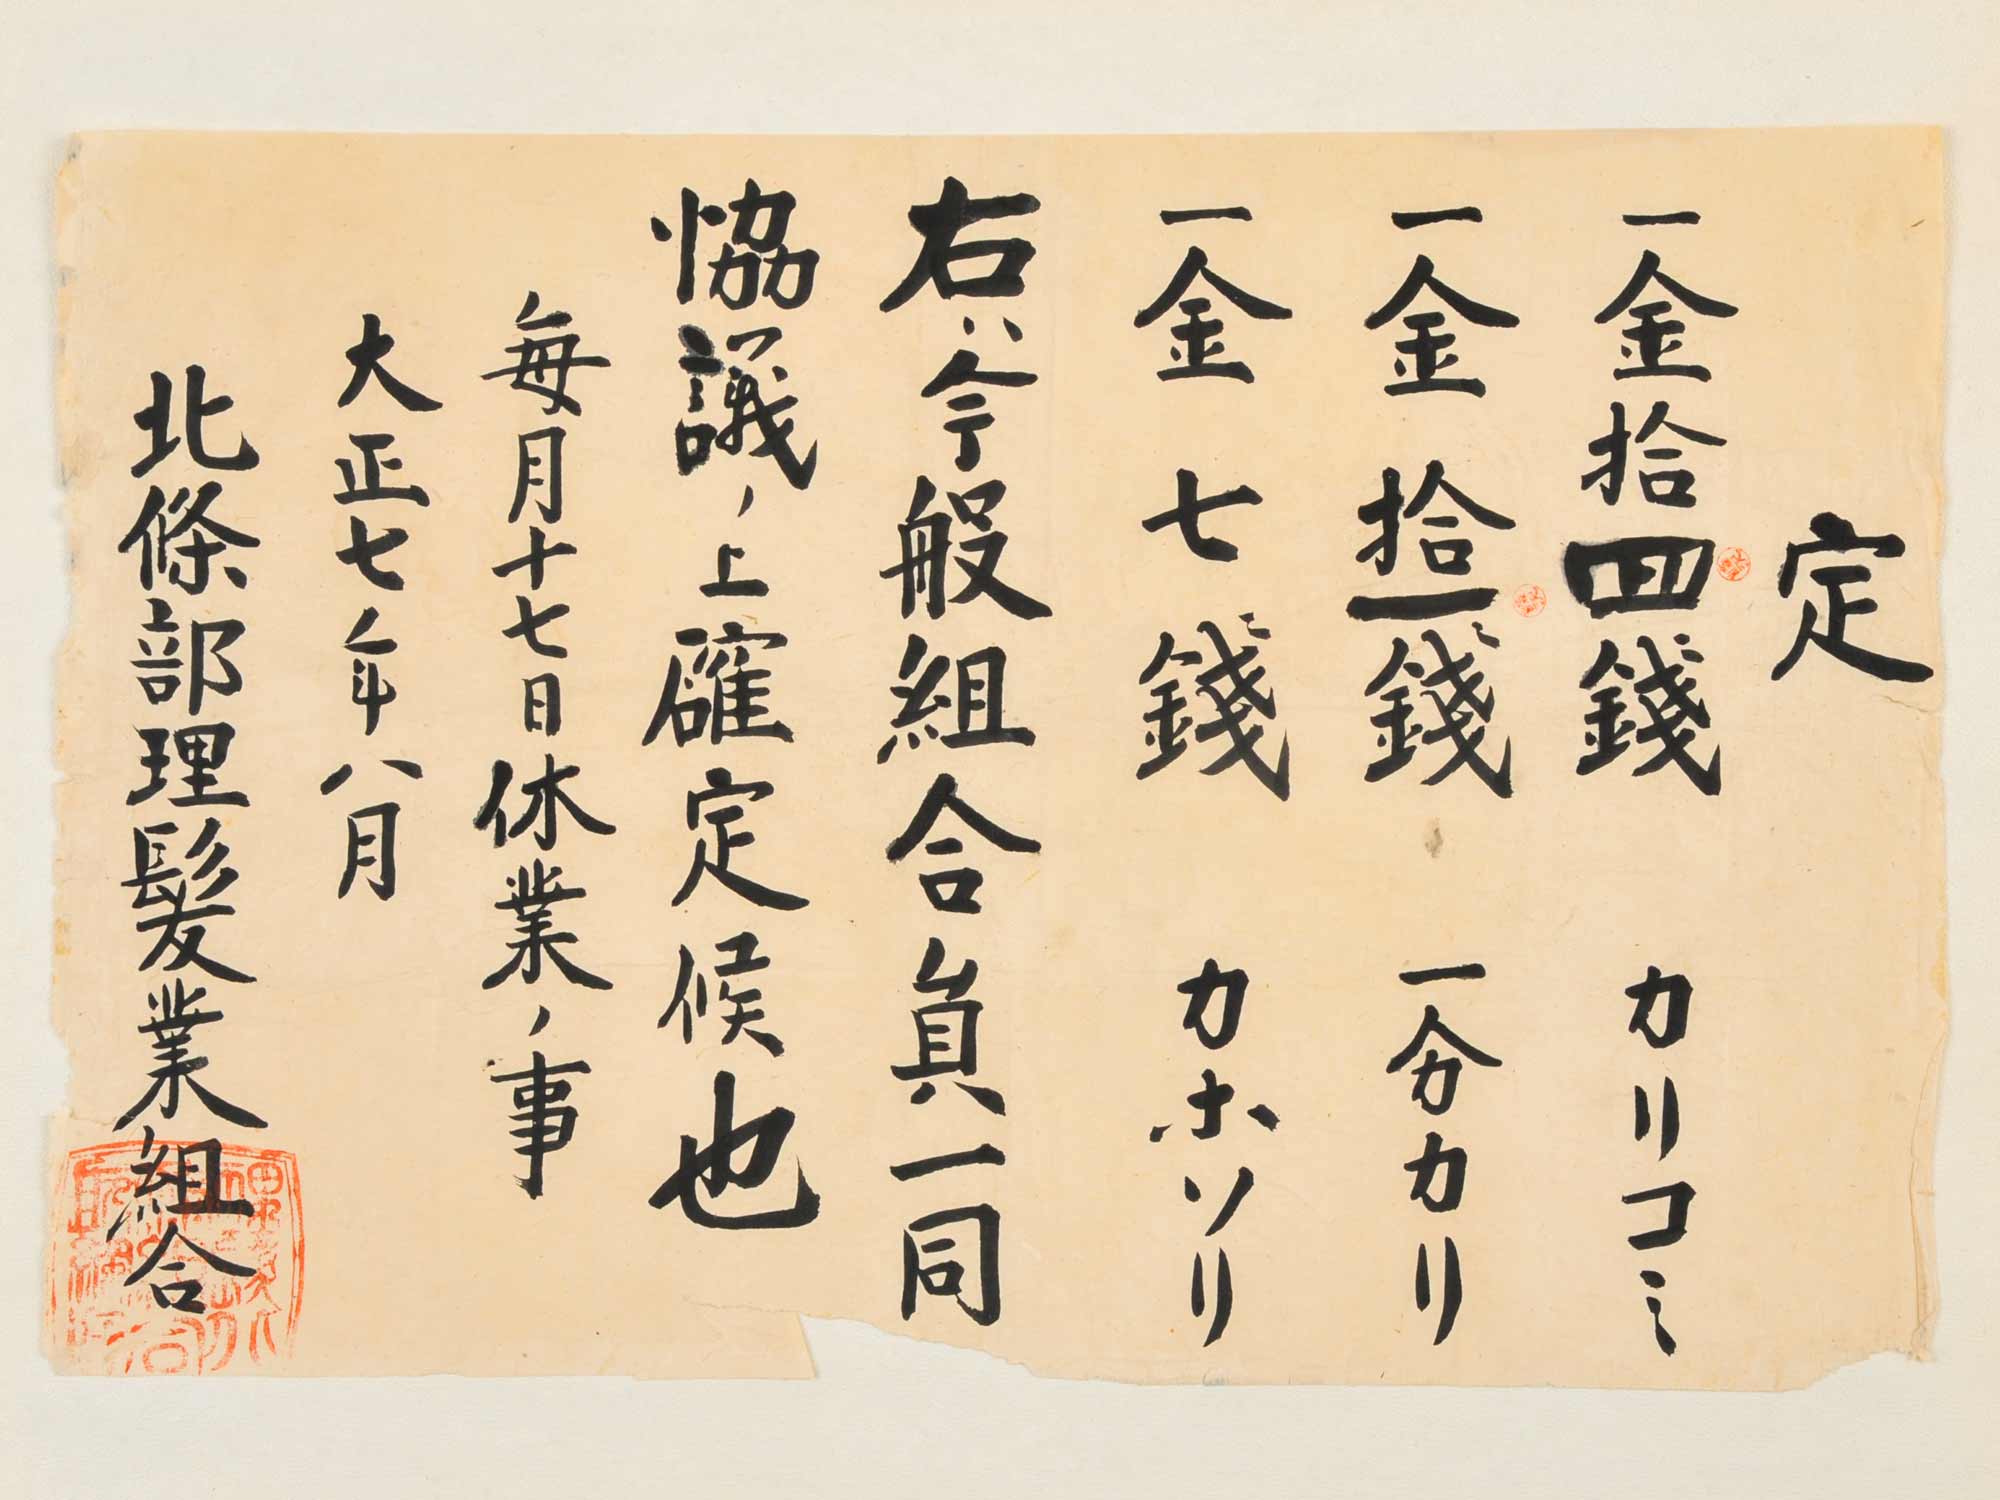 定
一金拾四錢 カリコミ
一金拾一錢 一分カリ
一金七錢 カホソリ
右ハ今般組合員一同
協議ノ上確定候也
毎月十七日休業ノ事
大正七年八月
北條部理髮業組合